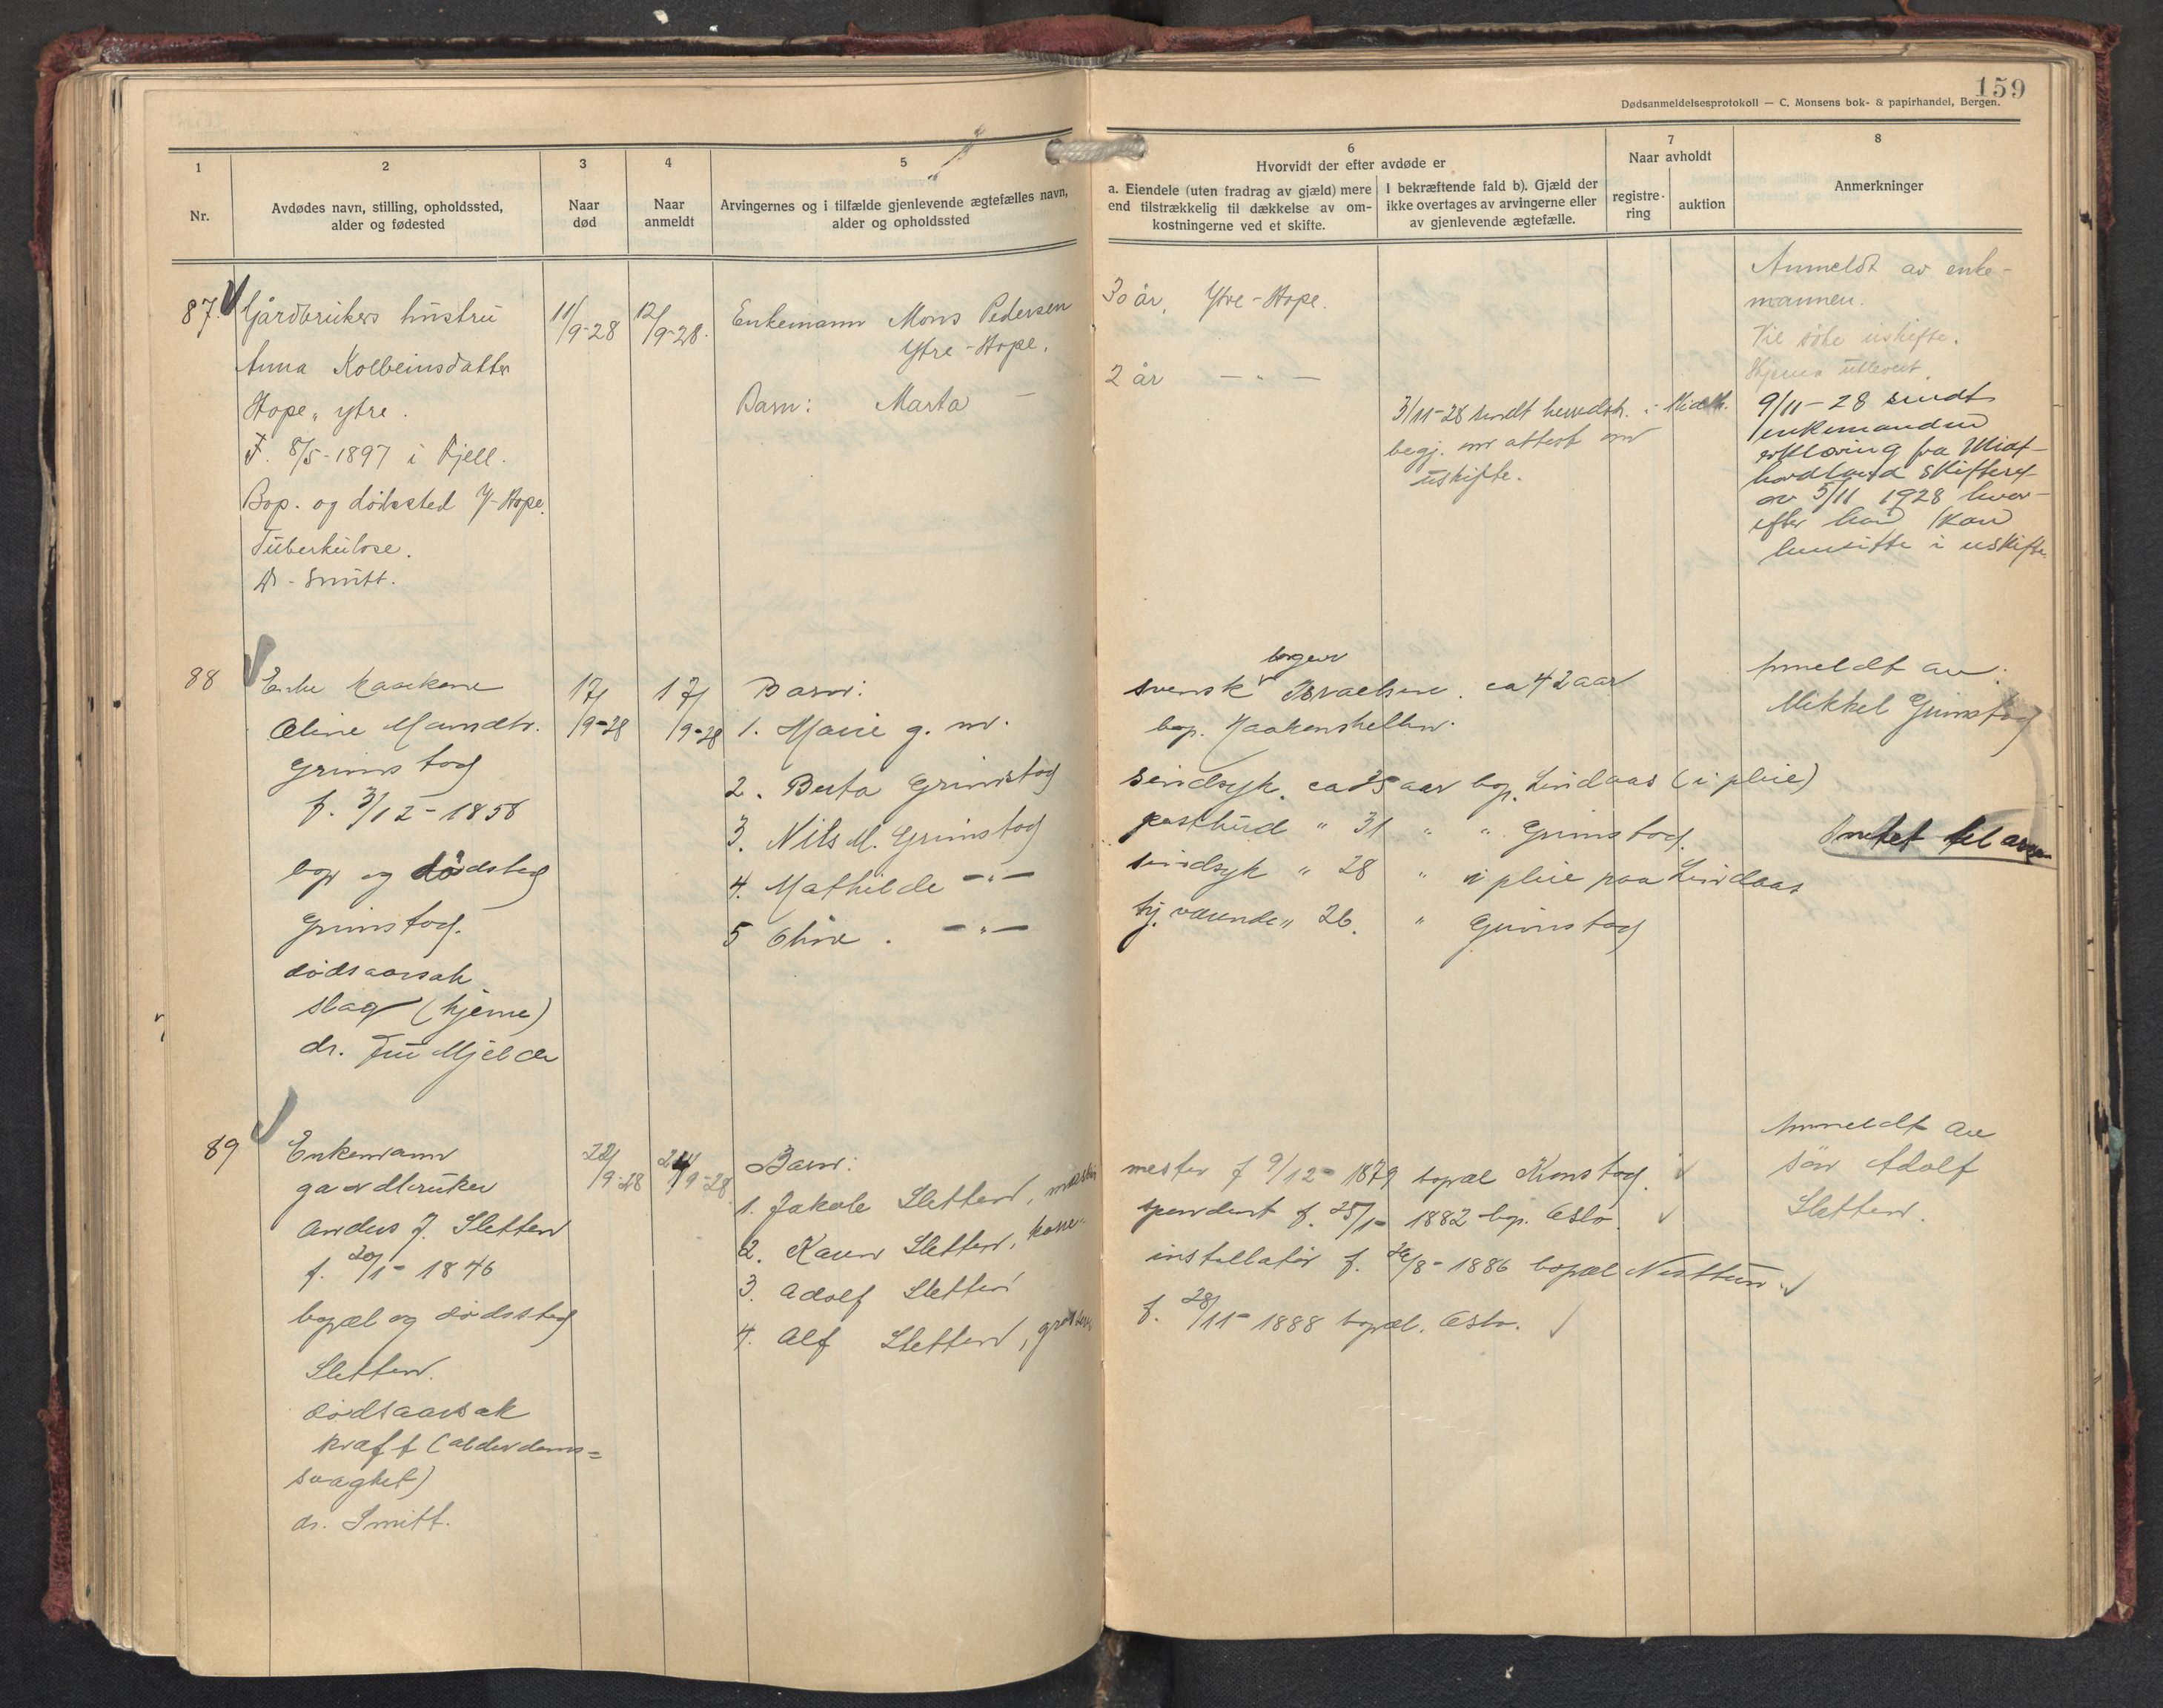 159
Dødsanmeldelsesprotokoll — C. Monsens bok- & papirhandel, Bergen.
1
Nr.
2
Avdødes navn, stilling, opholdssted,
alder og fødested
3
Naar
død
4
Naar
anmeldt
5
Arvingernes og i tilfælde gjenlevende ægtefælles navn,
alder og opholdssted
6
Hvorvidt der efter avdøde er
a. Eiendele (uten fradrag av gjæld) mere
end tilstrækkelig til dækkelse av om-
kostningerne ved et skifte.
I bekræftende fald b). Gjæld der
ikke overtages av arvingerne eller
av gjenlevende ægtefælle.
7
Naar avholdt
registre-
ring
auktion
8
Anmerkninger
87.
Gårdbrukers hustru
Anna Kolbeinsdatter
Hope, ytre.
F. 8/5-1897 i Fjell.
Bop. og dødssted Y-Hope.
Tuberkulose.
Dr. Smitt.
11/9-28
12/9-28.
Enkemann Mons Pedersen
Ytre-Hope.
Barn: Marta —
30 år, Ytre-Hope.
2 år — " —
3/11-28 sendt herredsr. i Midth.
begj. om attest om
uskifte.
Anmeldt av enke-
mannen.
Vil söke uskifte.
Skjema utlevert.
9/11-28 sendt
enkemanden
erklæring fra Midt-
hordland skifteret
av 5/11 1928 hvor-
efter han kan
hensitte i uskifte
88
Enke
Oline Monsdtr.
Grimstad
f. 3/12-1858
bop og dødsted
Grimstad.
dødsaarsak
slag (hjerne)
dr. Mjelde
17/9-28
17/9-28
Barn:
1. Marie g. m.
2. Berta Grimstad
3. Nils M. Grimstad
4. Mathilde — " —
5 Oline . — " —
borger
svensk Israelsen. ca 42 aar
bop. Haakonshellen.
sindsyk. ca 35 aar bop. Lindaas (i pleie)
postbud " 31 " " Grimstad.
sindsyk " 28 " i pleie paa Lindaas
hj. værende " 26. " Grimstad
Anmeldt av:
Mikkel Grimstad
Intet til arv
89
Enkemann
gaardbruker
Anders J. Sletten
f. 20/1-1846
bopæl og dødssted
Sletten.
Dødsaarsak
kræft (alderdoms=
svaghet)
dr. Smitt.
22/9-28
24/9-28.
Barn:
1. Jakob Sletten, maskin
2. Karen Sletten, korre-
3. Adolf Sletten
4. Alf Sletten, grosserer
mester f 9/12-1879 bopæl Kronstad.
spondent f. 25/1-1882 bop. Oslo.
installatør f. 26/8-1886 bopæl Nesttun.
f. 28/11-1888 bopæl. Oslo.
Anmeldt av
søn Adolf
Sletten.